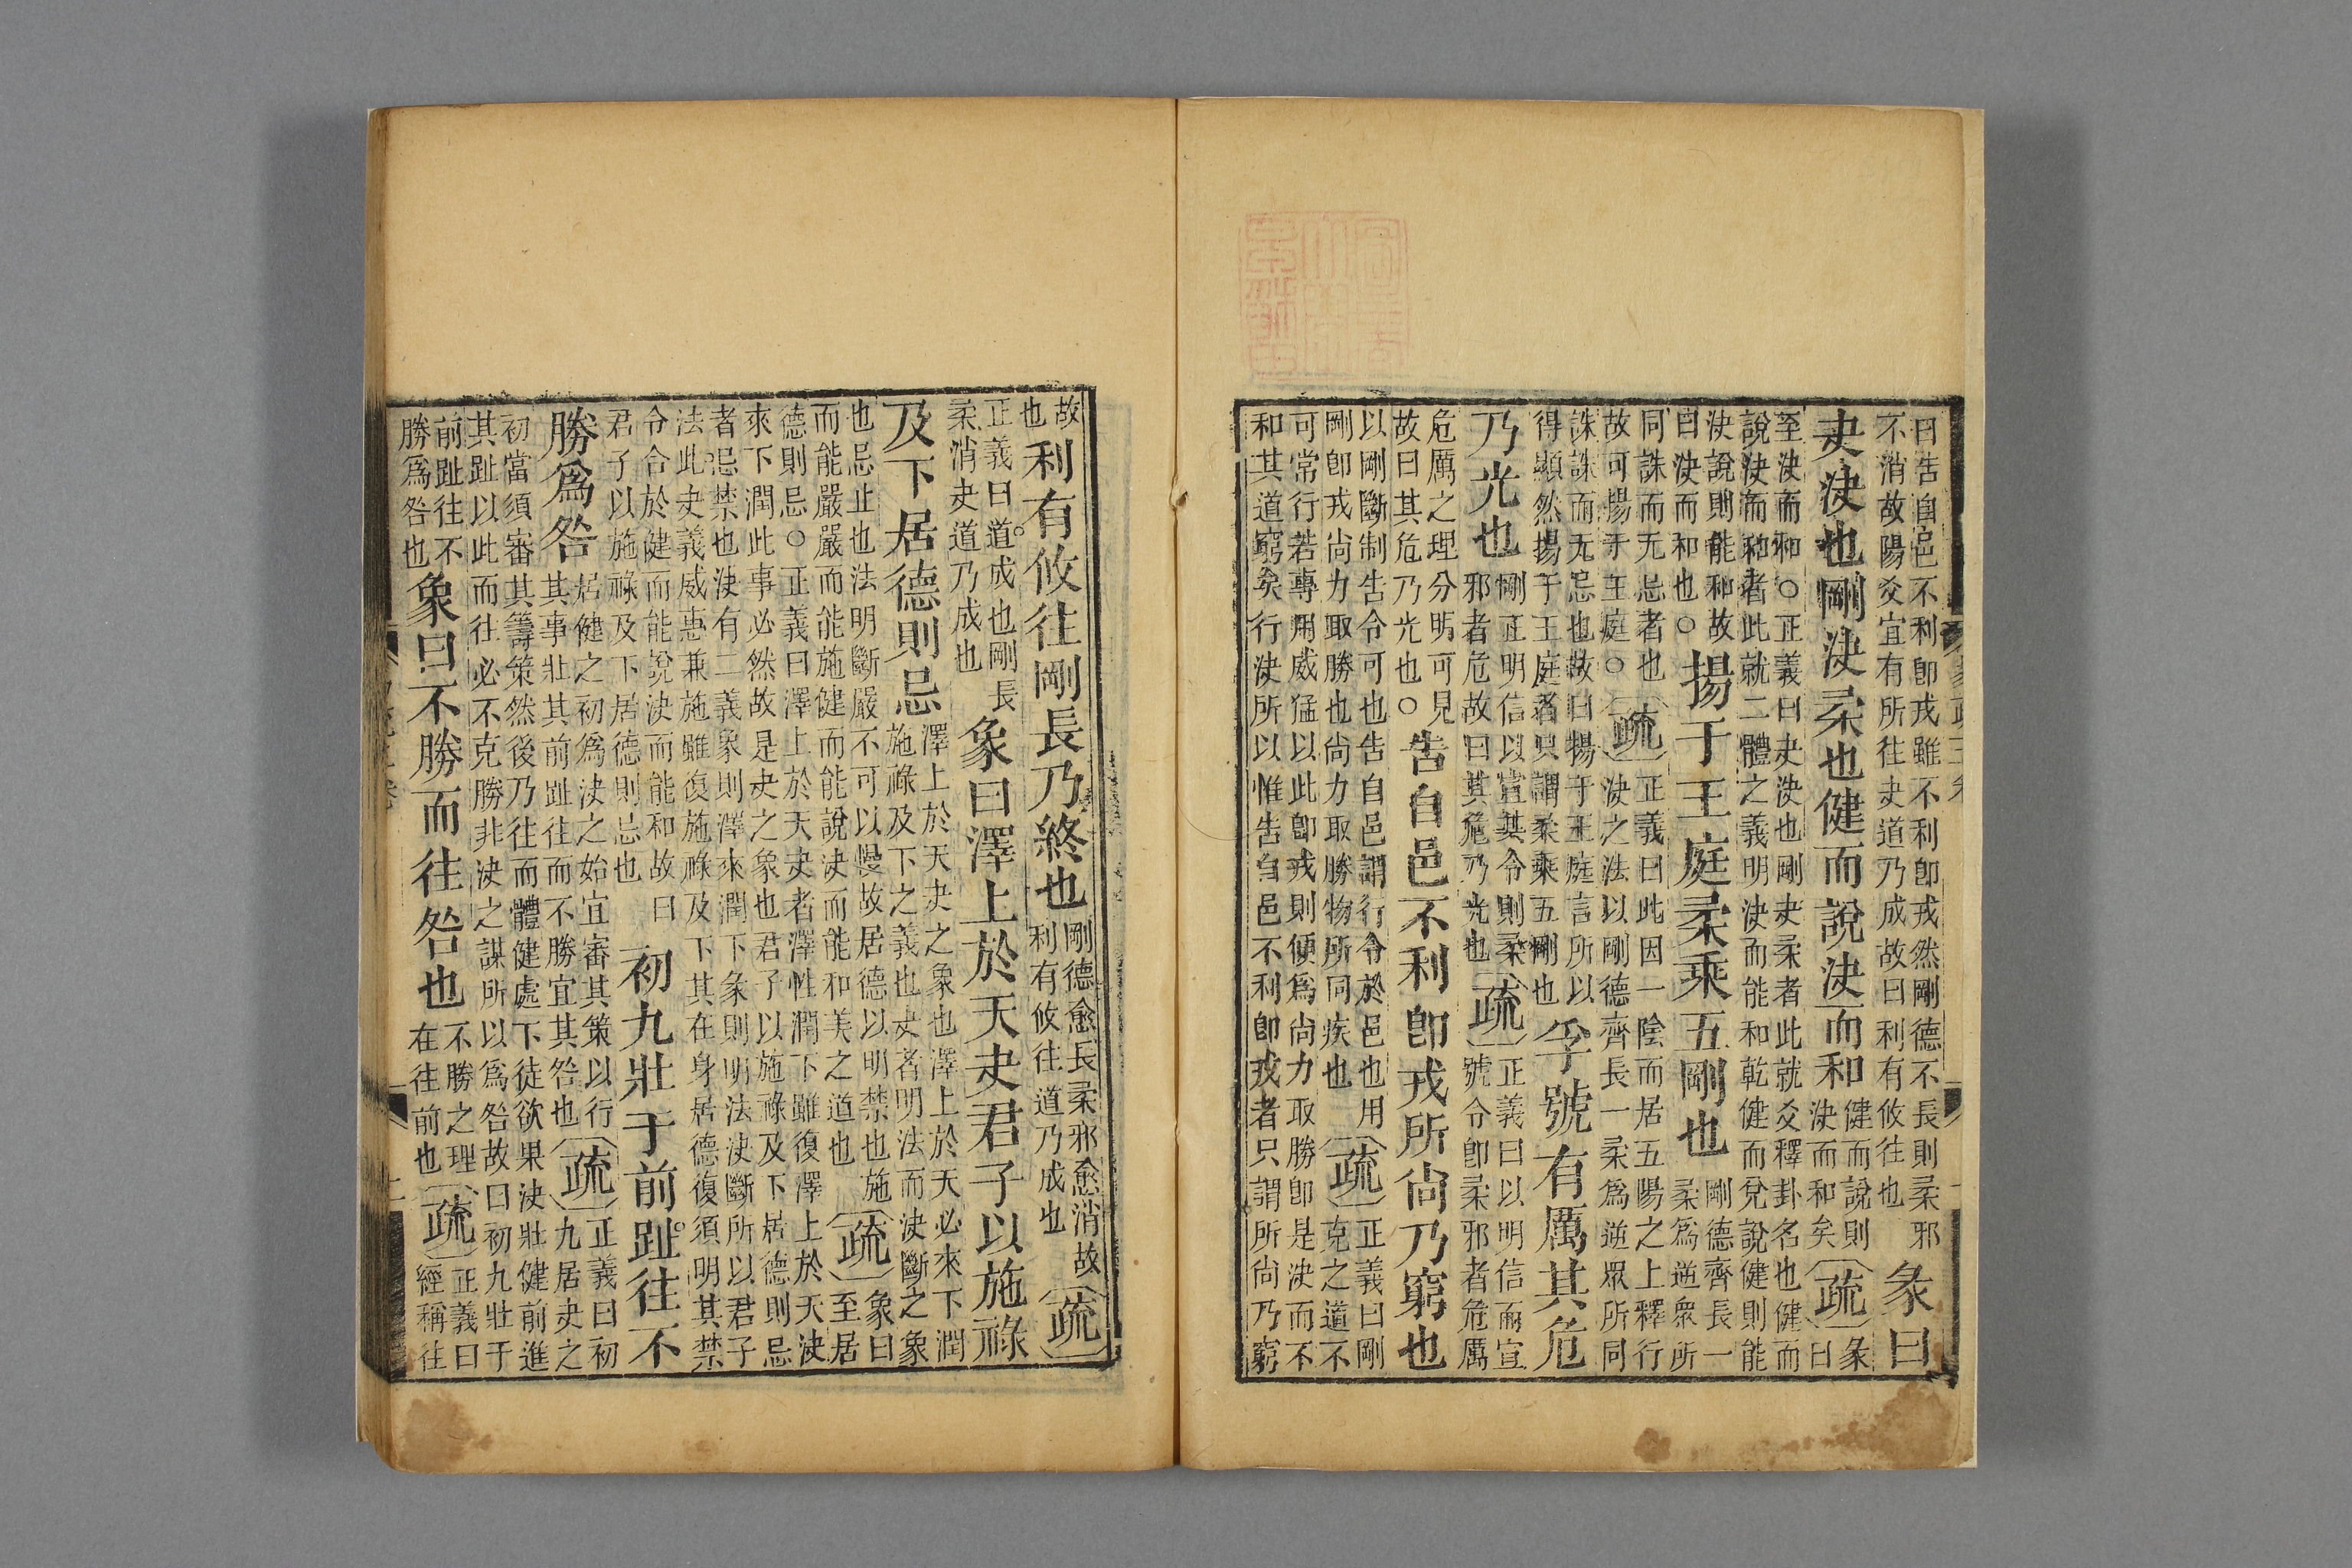 曰告自邑不利即戎雖不利即戎然剛德不長則柔邪
不消故陽爻宜有所往夬道乃成故曰利有攸往也
彖曰
夬決也剛決柔也健而說決而和
健而說則
決而和矣
疏
彖
曰
至決而和○正義曰夬決也剛夬柔者此就爻釋卦名也健而
說決而和者此就二體之義明決而能和乾健而兌說健則能
決說則能和故
曰決而和也○
揚于王庭柔乘五剛也
剛德齊長一
柔爲逆衆所
同誅而无忌者也
故可揚于王庭○
疏
正義曰此因一陰而居五陽之上釋行
決之法以剛德齊長一柔爲逆眾所同
誅誅而无忌也故曰揚于王庭言所以
得顯然揚于王庭者只謂柔乘五剛也
孚號有厲其危
乃光也
剛正明信以宣其令則柔
邪者危故曰其危乃光也
疏
正義曰以明信而宣
號令即柔邪者危厲
危厲之理分明可見
故曰其危乃光也○
告自邑不利即戎所尚乃窮也
以剛斷制告令可也告自邑謂行令於邑也用
剛即戎尚力取勝也尚力取勝物所同疾也
疏
正義曰剛
克之道不
可常行若專用威猛以此即戎則便爲尚力取勝即是決而不
和其道窮矣行決所以惟告自邑不利即戎者只謂所尚乃窮
故
也
利有攸往剛長乃終也
剛德愈長柔邪愈消故
利有攸往道乃成也
疏
正義曰道成也剛長
柔消夬道乃成也
象曰澤上於天夬君子以施祿
及下居德則忌
澤上於天夬之象也澤上於天必來下潤
施祿及下之義也夬者明法而決斷之象
也忌止也法明斷嚴不可以慢故居德以明禁也施
而能嚴嚴而能施健而能說決而能和美之道也
疏
象曰
至居
德則忌○正義曰澤上於天夬者澤性潤下雖復澤上於天決
來下潤此事必然故是夬之象也君子以施祿及下居德則忌
者忌禁也決有二義象則澤來潤下彖則明法決斷所以君子
法此夬義威惠兼施雖復施祿及下其在身居德復須明其禁
令合於健而能說決而能和故曰
君子以施祿及下居德則忌也
初九壯于前趾往不
勝爲咎
居健之初爲決之始宜審其策以行
其事壯其前趾往而不勝宜其咎也
疏
正義曰初
九居夬之
初當須審其籌策然後乃往而體健處下徒欲果決壯健前進
其趾以此而往必不克勝非決之謀所以爲咎故曰初九壯于
前趾往不
勝爲咎也
象曰不勝而往咎也
不勝之理
在往前也
疏
正義曰
經稱往